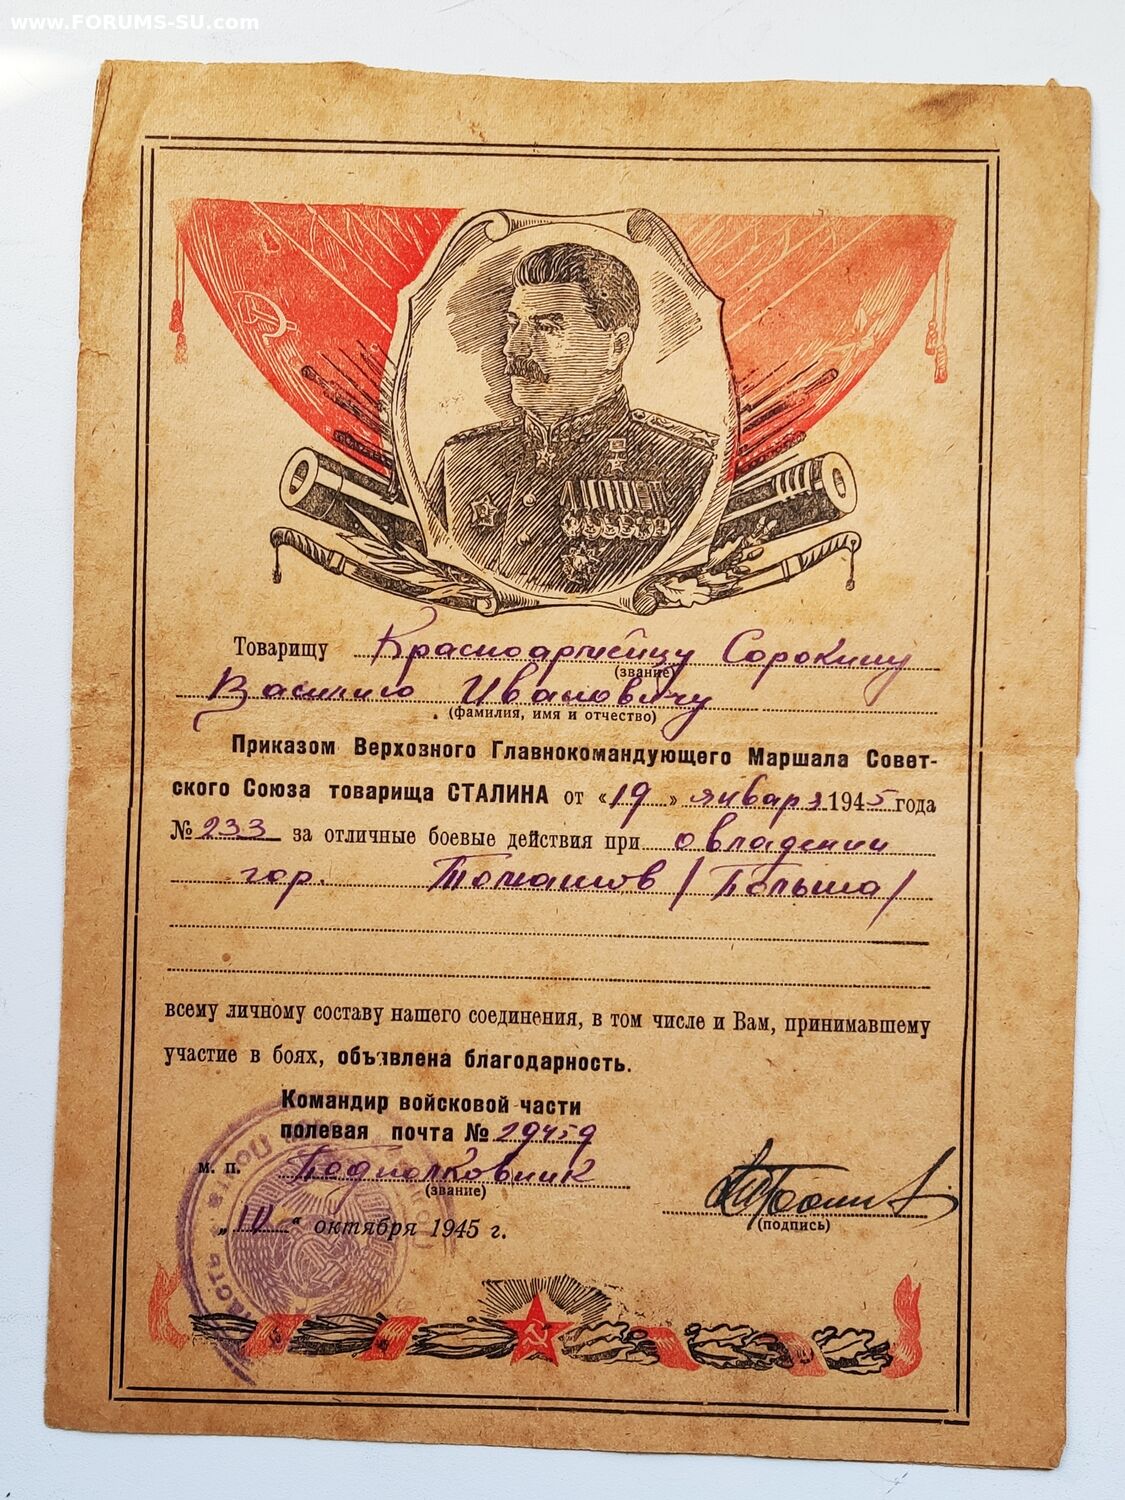 www.FORUMS-SU.com
Товарищу Красноармейцу Сорокину
(звание)
Василию Ивановичу
(фамилия, имя и отчество)
Приказом Верховного Главнокомандующего Маршала Совет-
ского Союза товарища СТАЛИНА от «19» января 1945 года
№ 233 за отличные боевые действия при овладении
гор. Томашов /Польша/
всему личному составу нашего соединения, в том числе и Вам, принимавшему
участие в боях, объявлена благодарность.
Командир войсковой части
полевая почта № 29459
м. п. Подполковник
(звание)
„10“ октября 1945 г.
(подпись)